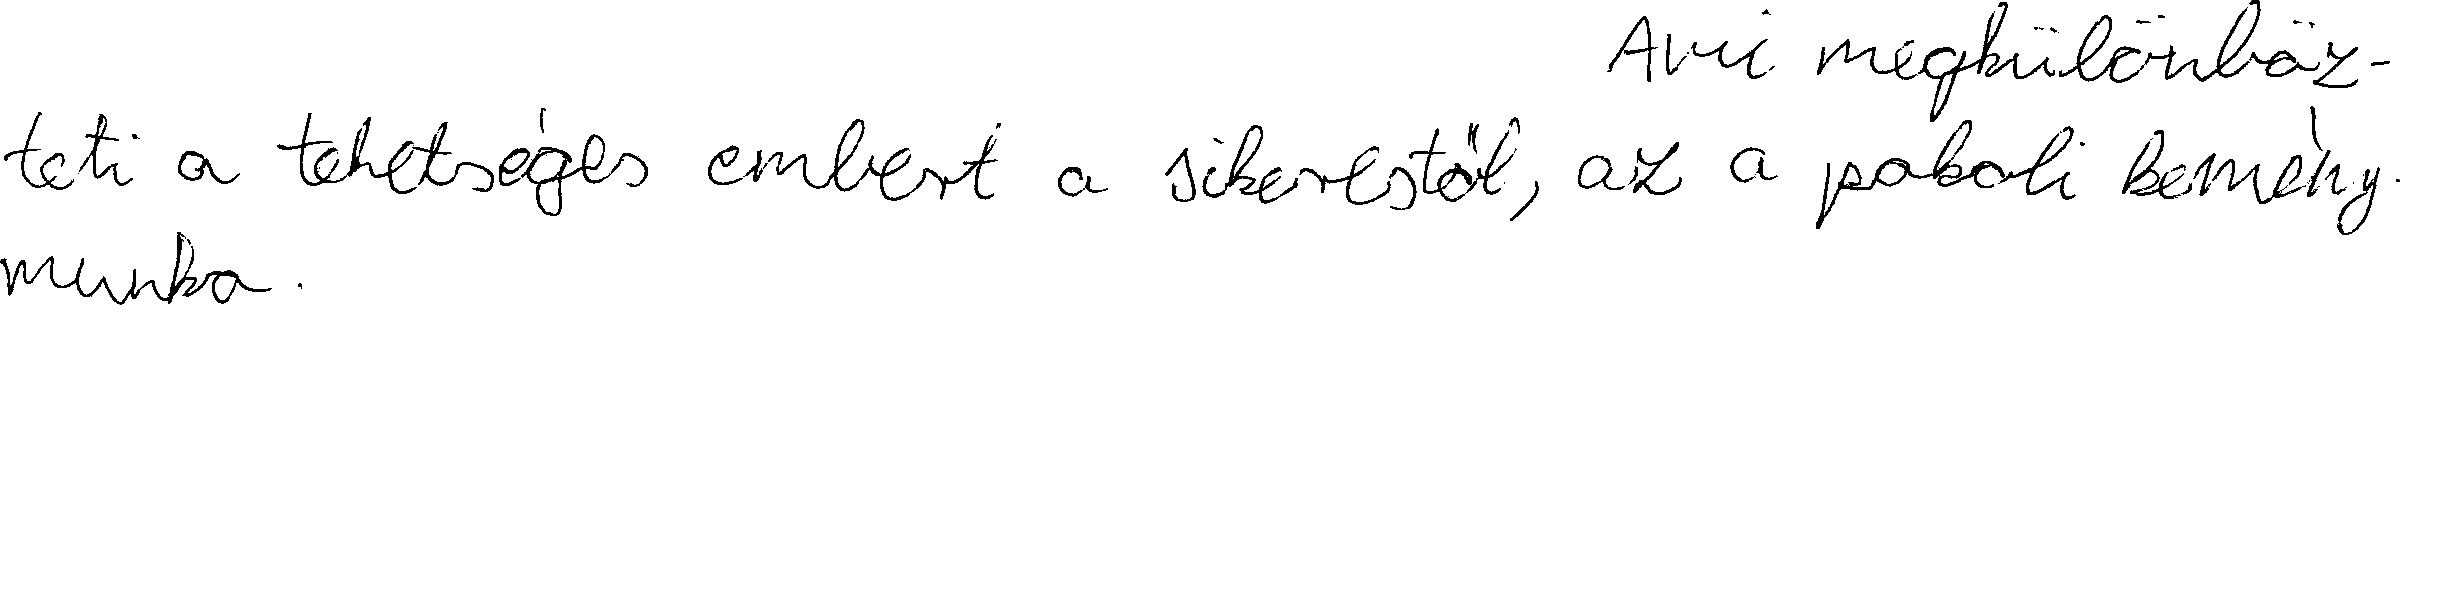 Ami megkülönböz-
teti a tehetséges embert a sikerestől, az a pokoli kemény
munka.